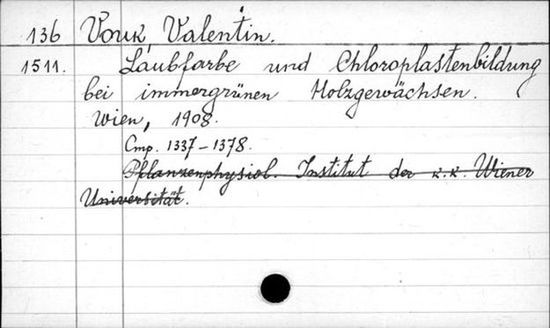 136 Vouk, Valentin.
1511. Laubfarbe und Chloroplastenbildung
bei immergrünen Holzgewächsen.
Wien, 1908.
Стр. 1337-1378.
Pflanzenphysiol. Institut der k.k. Wiener
Universität.